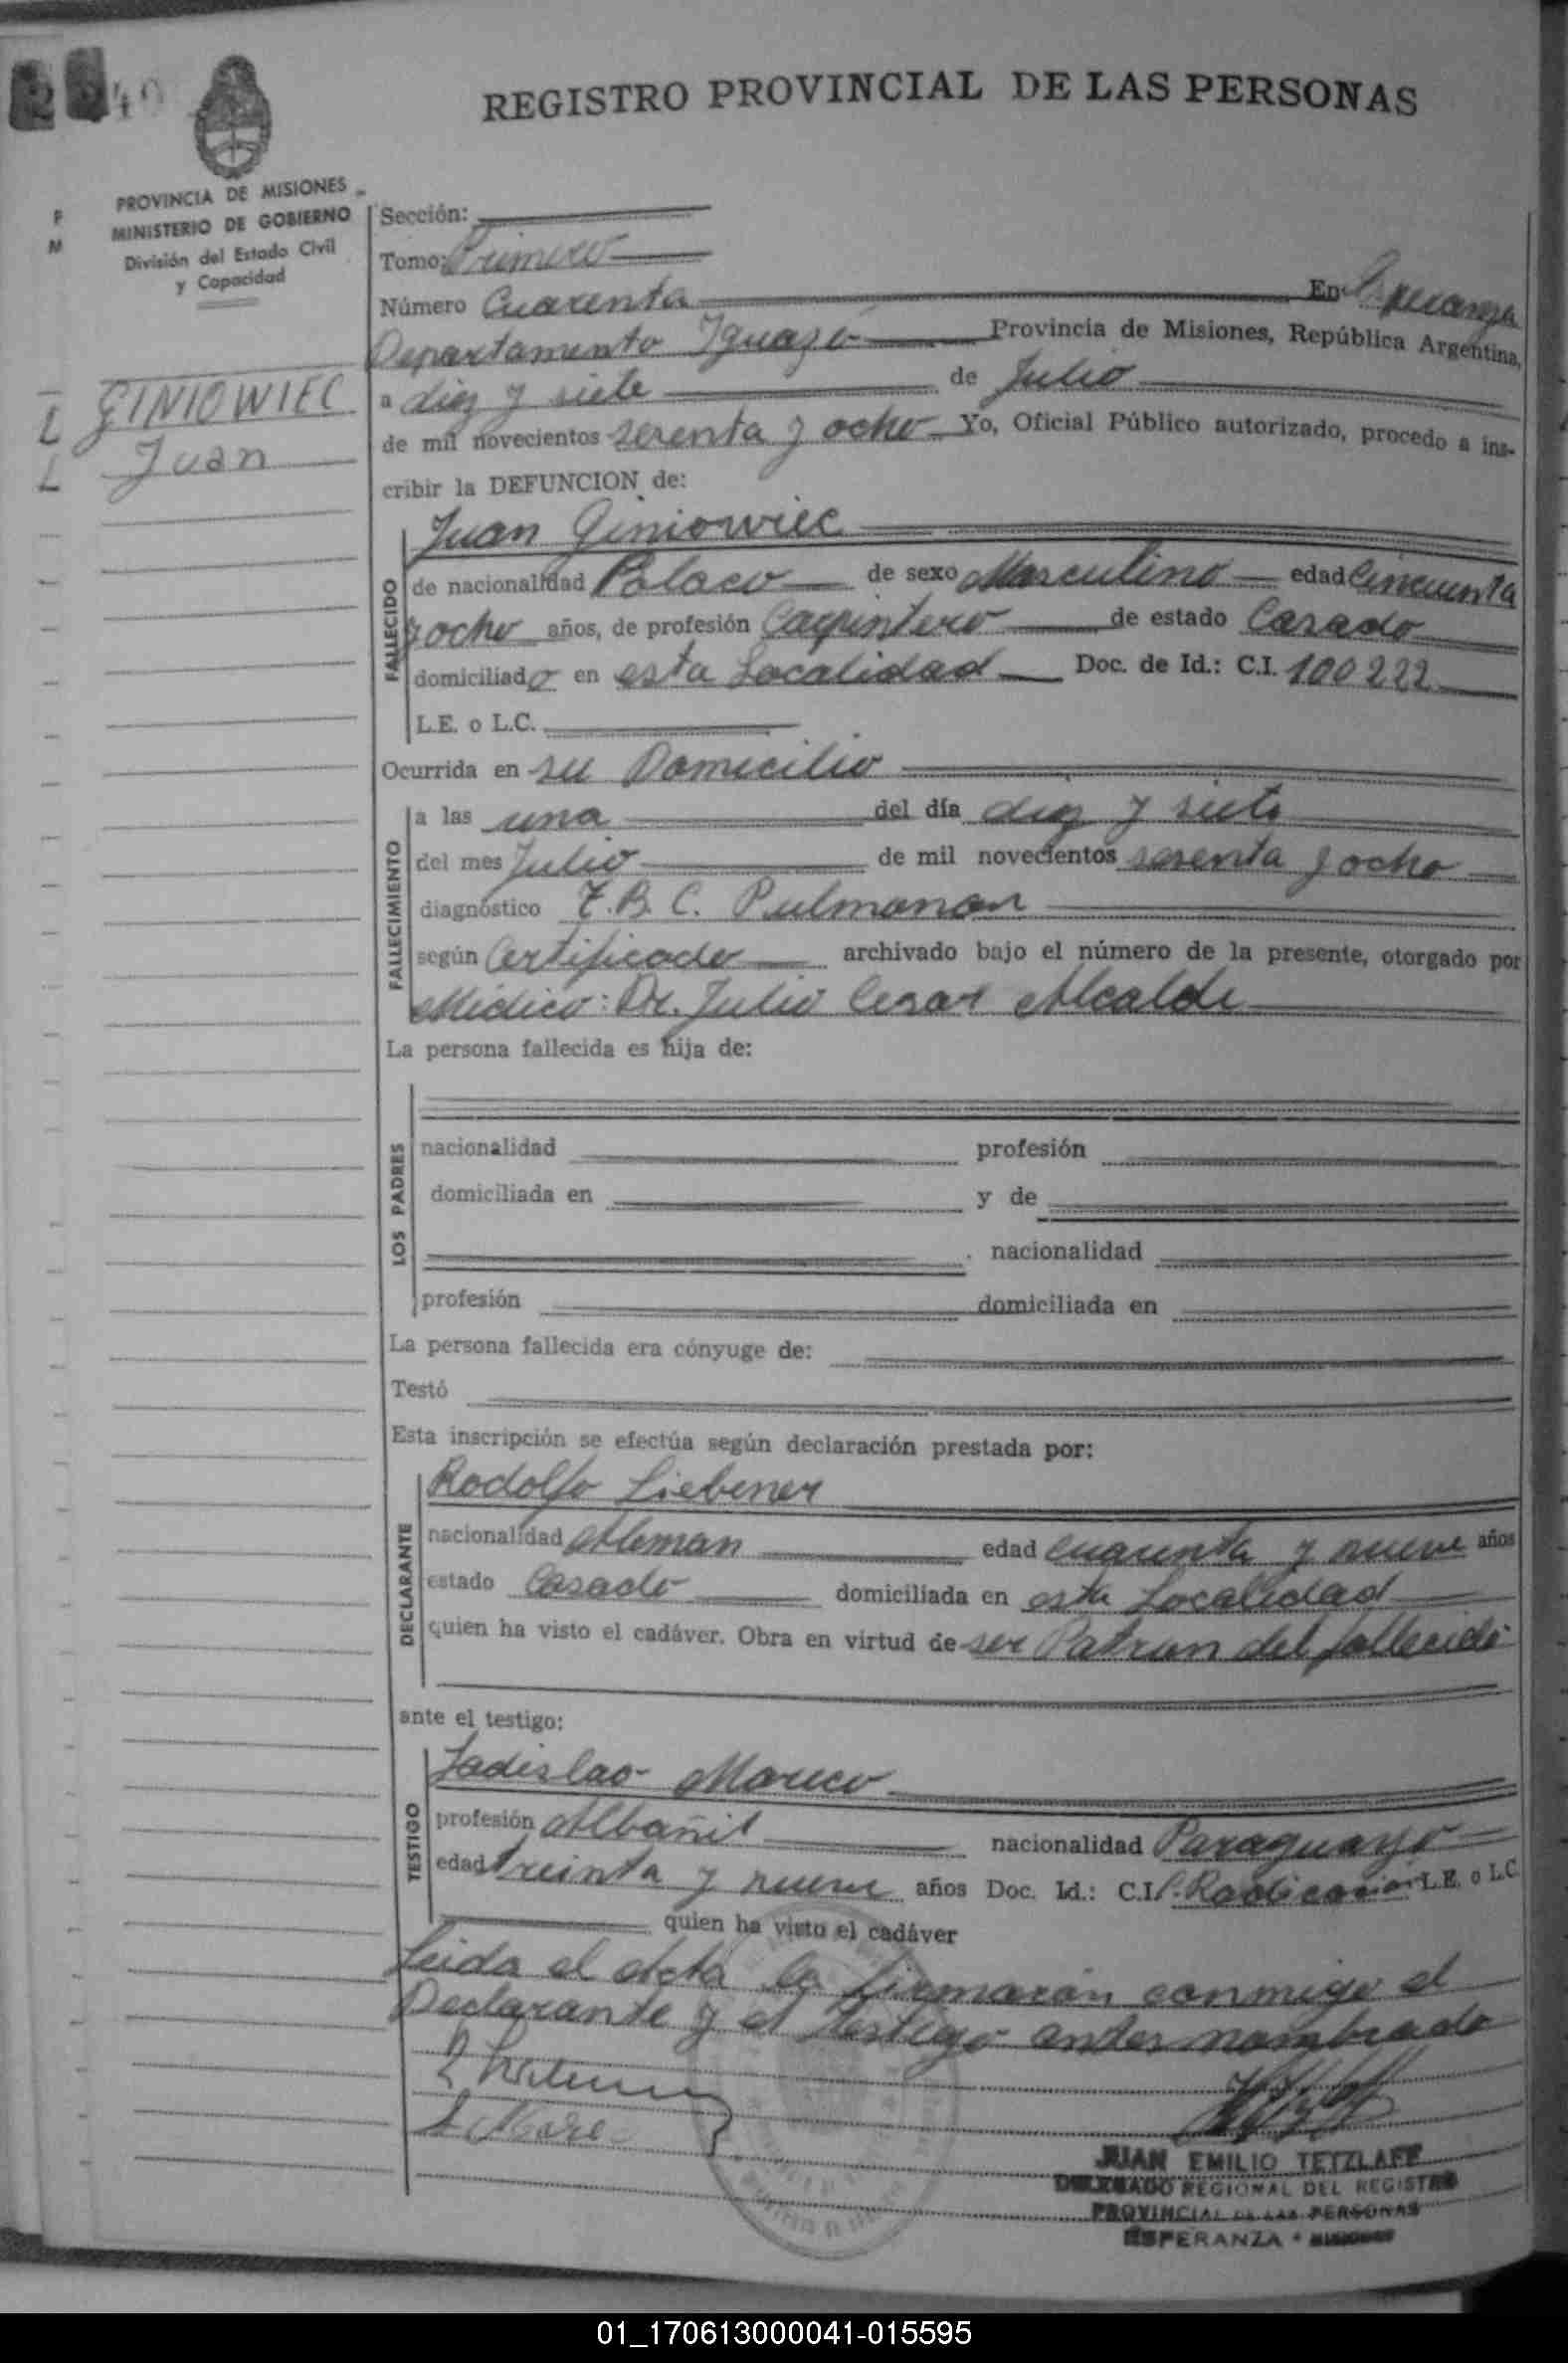 40
REGISTRO PROVINCIAL DE LAS PERSONAS
PROVINCIA DE MISIONES
MINISTERIO DE GOBIERNO
División del Estado Civil
y Capacidad
P
M
Sección:
Tomo: Primero
Número Cuarenta En Esperanza
Departamento Iguazú Provincia de Misiones, República Argentina,
a diez y siete de Julio
GINIOWIEC
Juan
de mil novecientos sesenta y ocho Yo, Oficial Público autorizado, procedo a ins-
cribir la DEFUNCION de:
Juan Giniowiec
FALLECIDO
de nacionalidad Polaco de sexo Masculino edad Cincuenta
y ocho años, de profesión Carpintero de estado Casado
domiciliado en esta Localidad Doc. de Id.: C.I. 100222
L.E. o L.C.
Ocurrida en su Domicilio
FALLECIMIENTO
a las una del día diez y siete
del mes Julio de mil novecientos sesenta y ocho
diagnóstico T.B.C. Pulmonar
según Certificado archivado bajo el número de la presente, otorgado por
Médico: Dr. Julio Cesar Alcalde
La persona fallecida es hija de:
LOS PADRES
nacionalidad profesión
domiciliada en y de
nacionalidad
profesión domiciliada en
La persona fallecida era cónyuge de:
Testó
Esta inscripción se efectúa según declaración prestada por:
DECLARANTE
Rodolfo Liebener
nacionalidad Aleman edad cuarenta y nueve años
estado Casado domiciliada en esta Localidad
quien ha visto el cadáver. Obra en virtud de ser Patron del fallecido
ante el testigo:
TESTIGO
Ladislao Mareco
profesión Albañil nacionalidad Paraguayo
edad treinta y nueve años Doc. Id.: C.I. Radicación L.E. o L.C.
quien ha visto el cadáver
Leida el Acta la firmarán conmigo el
Declarante y el testigo antes nombrado
JUAN EMILIO TETZLAFF
DELEGADO REGIONAL DEL REGISTRO
PROVINCIAL DE LAS PERSONAS
ESPERANZA - MISIONES
01_170613000041-015595